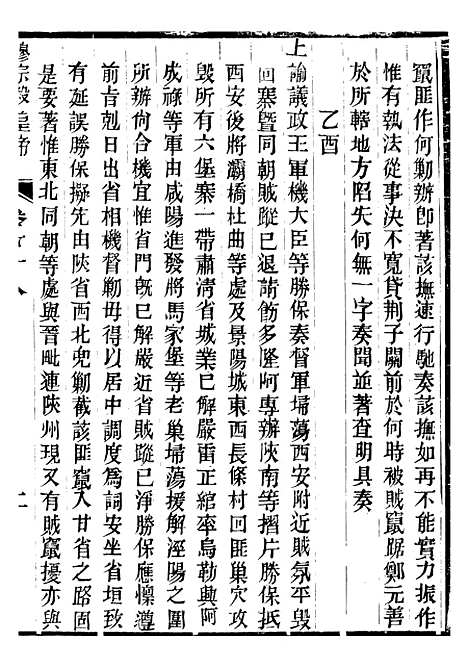 竄匪作何勦辦卽著該撫速行馳奏該撫如再不能實力振作
惟有執法從事決不寬貸荆子關前於何時被賊竄踞鄭元善
於所轄地方陷失何無一字奏聞並著查明具奏
乙酉
上諭議政王軍機大臣等勝保奏督軍埽蕩西安附近賊氛平毀
回寨暨同朝賊蹤已退請飭多隆阿專辦陝南等摺片勝保抵
西安後將灞橋杜曲等處及景陽城東西長條村回匪巢穴攻
毀所有六堡寨一帶肅清省城業已解嚴雷正綰率烏勒興阿
成祿等軍由咸陽進發將馬家堡等老巢埽蕩援解涇陽之圍
所辦尙合機宜惟省門旣已解嚴近省賊蹤已淨勝保應懍遵
前旨剋日出省相機督勦毋得以居中調度爲詞安坐省垣致
有延誤勝保擬先由陝省西北兜勦截該匪竄入甘省之路固
是要著惟東北同朝等處與晉毗連陝州現又有賊竄擾亦與
穆宗毅皇帝